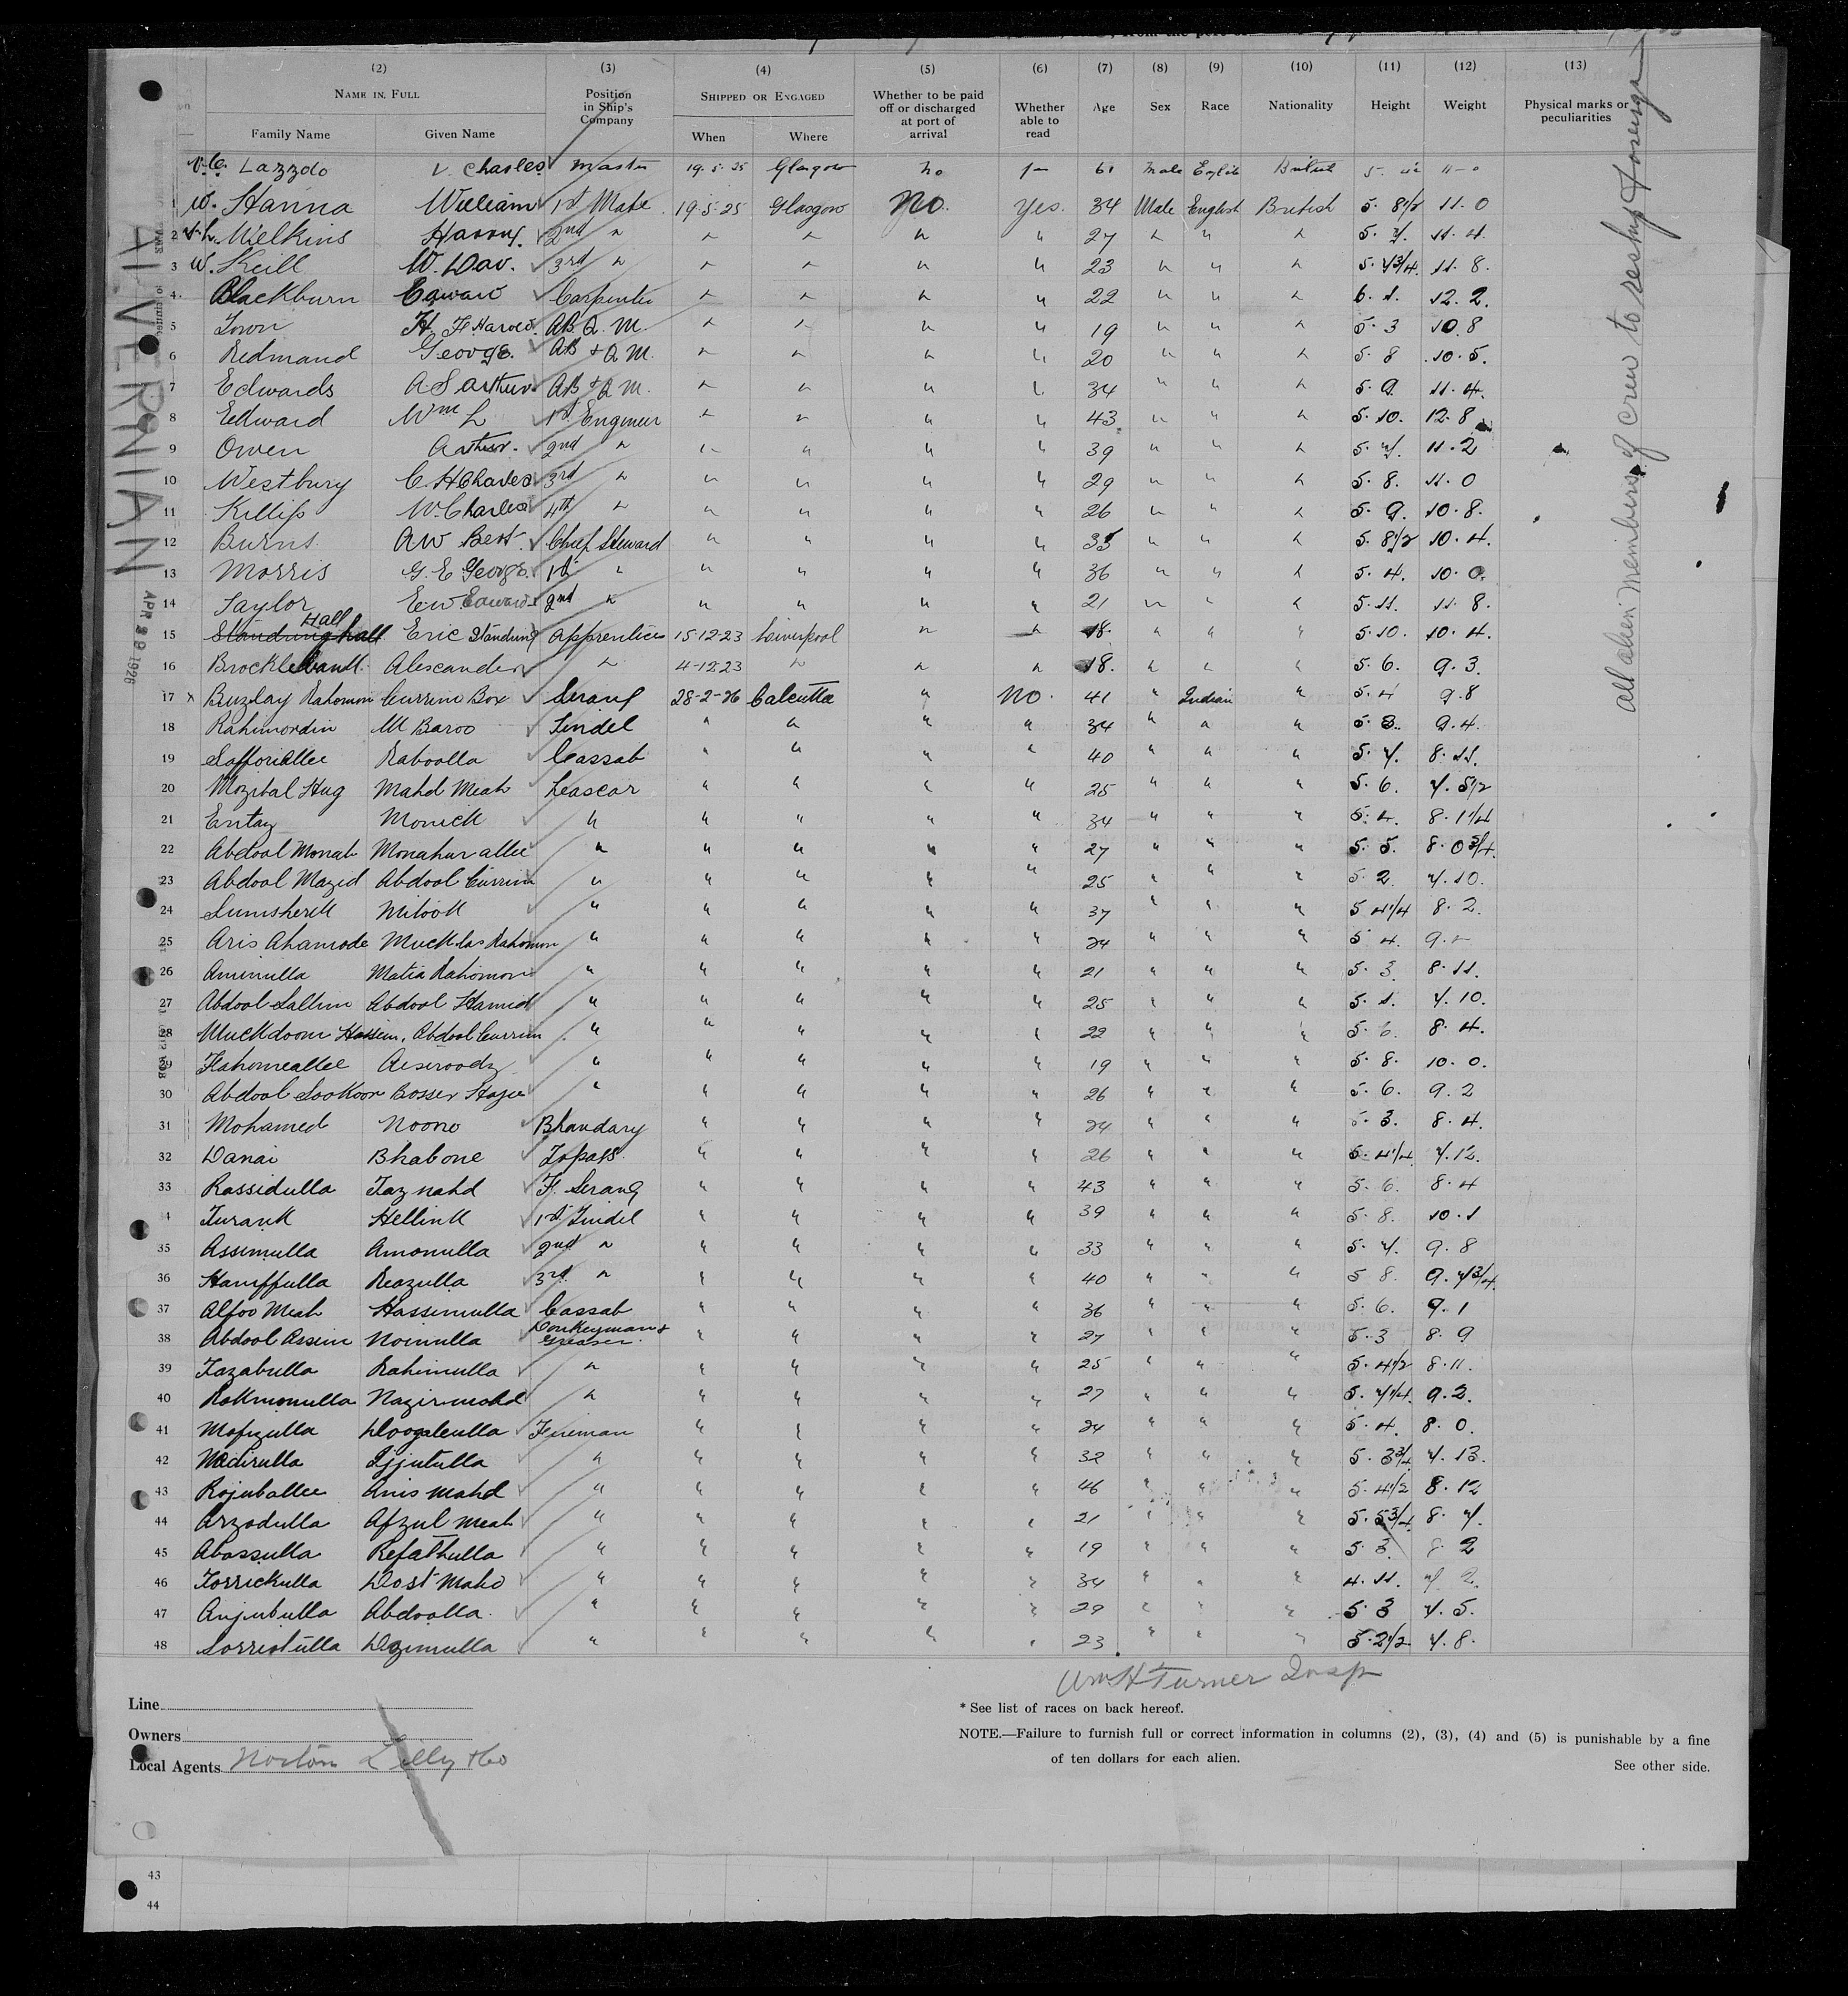 (2) (3) (4) (5) (6) (7) (8) (9) (10) (11) (12) (13)
NAME IN FULL Position in Ship's Company SHIPPED OR ENGAGED Whether to be paid off or discharged at port of arrival Whether able to read Age Sex Race Nationality Height Weight Physical marks or peculiarities
Family Name Given Name When Where
V.C. Lazzolo V. Charles Master 19.5.25 Glasgow No 61 Male English British 5. 11-0
1 W. Hanna William 1st Mate 19-5-25 Glasgow No. Yes. 34 Male English British 5. 8 1/2 11. 0
2 Wilkins Harry. 2nd " " " " " 27 " " " 5. 7. 11. 4.
3 W. Keill W. Dav. 3rd " " " " " 23 " " " 5. 7 3/4. 11. 8.
4 Blackburn Edward Carpenter " " " " 22 " " " 6. 1. 12. 2.
5 Town H. F Harold. AB. Q. M. " " " " 19 " " " 5. 3 10. 8
6 Redmand George. AB + Q M. " " " " 20 " " " 5. 8 10. 5.
7 Edwards A. S Arthur AB + Q M. " " " " 34 " " " 5. 9. 11. 4.
8 Edward Wm L 1st Engineer " " " " 43 " " " 5. 10. 12. 8
9 Owen Arthur. 2nd " " " " " 39 " " " 5. 7. 11. 2
10 Westbury C. H Charles 3rd " " " " " 29 " " " 5. 8. 11. 0
11 Killip W. Charles 4th " " " " " 26 " " " 5. 9. 10. 8.
12 Burns AW Bert. Chief Steward " " " " 35 " " " 5. 8 1/2 10. 4.
13 Morris G. E George. 1st " " " " " 36 " " " 5. 4. 10. 0.
14 Taylor E W Edward 2nd " " " " " 21 " " " 5. 11. 11. 8.
Hall
15 Standring hall Eric Standring Apprentice 15-12-23 Liverpool " " 18. " " " 5. 10. 10. 4.
16 Brocklebank Alexander " 4-12-23 " " " 18. " " " 5. 6. 9. 3.
17 x Buzlay Rahomon Currim Box Serang 28-2-26 Calcutta " No. 41 " Indian " 5. 4 9. 8
18 Rahimordin Baroo Tindel " " " " 34 " " " 5. 8. 9. 4.
19 Safforiallee Raboolla Cassab " " " " 40 " " " 5. 7. 8. 11.
20 Mozibal Hug Mahd Meah Lascar " " " " 25 " " " 5. 6. 7. 5 1/2
21 Entaz Monick " " " " " 34 " " " 5. 4. 8. 1 1/4
22 Abdool Monab Monahur allee " " " " " 27 " " " 5. 5. 8. 0 3/4.
23 Abdool Mazid Abdool Currim " " " " " 25 " " " 5. 2. 7. 10.
24 Sumsherk " " " " " 37 " " " 5 4 1/4 8. 2.
25 Aris Ahamode Mucklas Rahomon " " " " " 24 " " " 5 4. 9. "
26 Aminulla Matia Rahomon " " " " " 21 " " " 5. 3 8. 11.
27 Abdool Sallim Abdool Hamid " " " " " 25 " " " 5. 1. 7. 10.
28 Muckdoom Hossein, Abdool Currim " " " " " 22 " " " 5. 6. 8. 4.
29 Fahomeallee " " " " " 19 " " " 5. 8. 10. 0.
30 Abdool Sookoor Bosser Hazee " " " " " 26 " " " 5. 6. 9. 2
31 Mohamed Noono Bhandary " " " " 24 " " " 5. 3. 8. 4.
32 Danai Bhabone Topass. " " " " 26 " " " 5. 4 1/4. 7. 12.
33 Rassidulla Faz nahd F. Serang " " " " 43 " " " 5. 6. 8. 4
34 Turank Hellink 1st Tindel " " " " 39 " " " 5. 8. 10. 1
35 Assimulla Amonulla 2nd " " " " " 33 " " " 5. 7. 9. 8
36 Haniffulla Reazulla 3rd " " " " " 40 " " " 5 8. 9. 7 3/4
37 Alfoo Meah Hassimulla Cassab " " " " 36 " " " 5. 6. 9. 1
38 Abdool Assim Noimulla Donkeyman & Greaser. " " " " 27 " " " 5. 3 8. 9
39 Fazabulla Rahimulla " " " " " 25 " " " 5. 4 1/2 8. 11.
40 Rokmonulla Nazir mohd " " " " " 27 " " " 5. 7 1/4. 9. 2.
41 Mofizulla Fireman " " " " 24 " " " 5. 4. 8. 0.
42 Nadirulla Ijjutulla " " " " " 32 " " " 5. 3 3/4 7. 13.
43 Rojuballee Anis Mahd " " " " " 46 " " " 5. 4 1/2 8. 12
44 Arzodulla Afzul Meah " " " " " 21 " " " 5. 5 3/4. 8. 7.
45 Abassulla Refathulla " " " " " 19 " " " 5 3. 8. 2
46 Torrickulla Dost Mahd " " " " " 34 " " " 4. 11. 7 2.
47 Anjubulla Abdoolla. " " " " " 29 " " " 5 3 7. 5.
48 Sorrestulla Dazimulla " " " " " 23 " " " 5. 2 1/2 7. 8.
All alien members of crew to reship foreign
ALVERNIAN
APR 19 1926
Wm H Turner Insp
Line
Owners
Local Agents Norton Lilly & Co
* See list of races on back hereof.
NOTE.—Failure to furnish full or correct information in columns (2), (3), (4) and (5) is punishable by a fine
of ten dollars for each alien.
See other side.
43
44